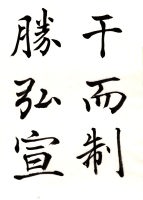 干而制
勝弘宣